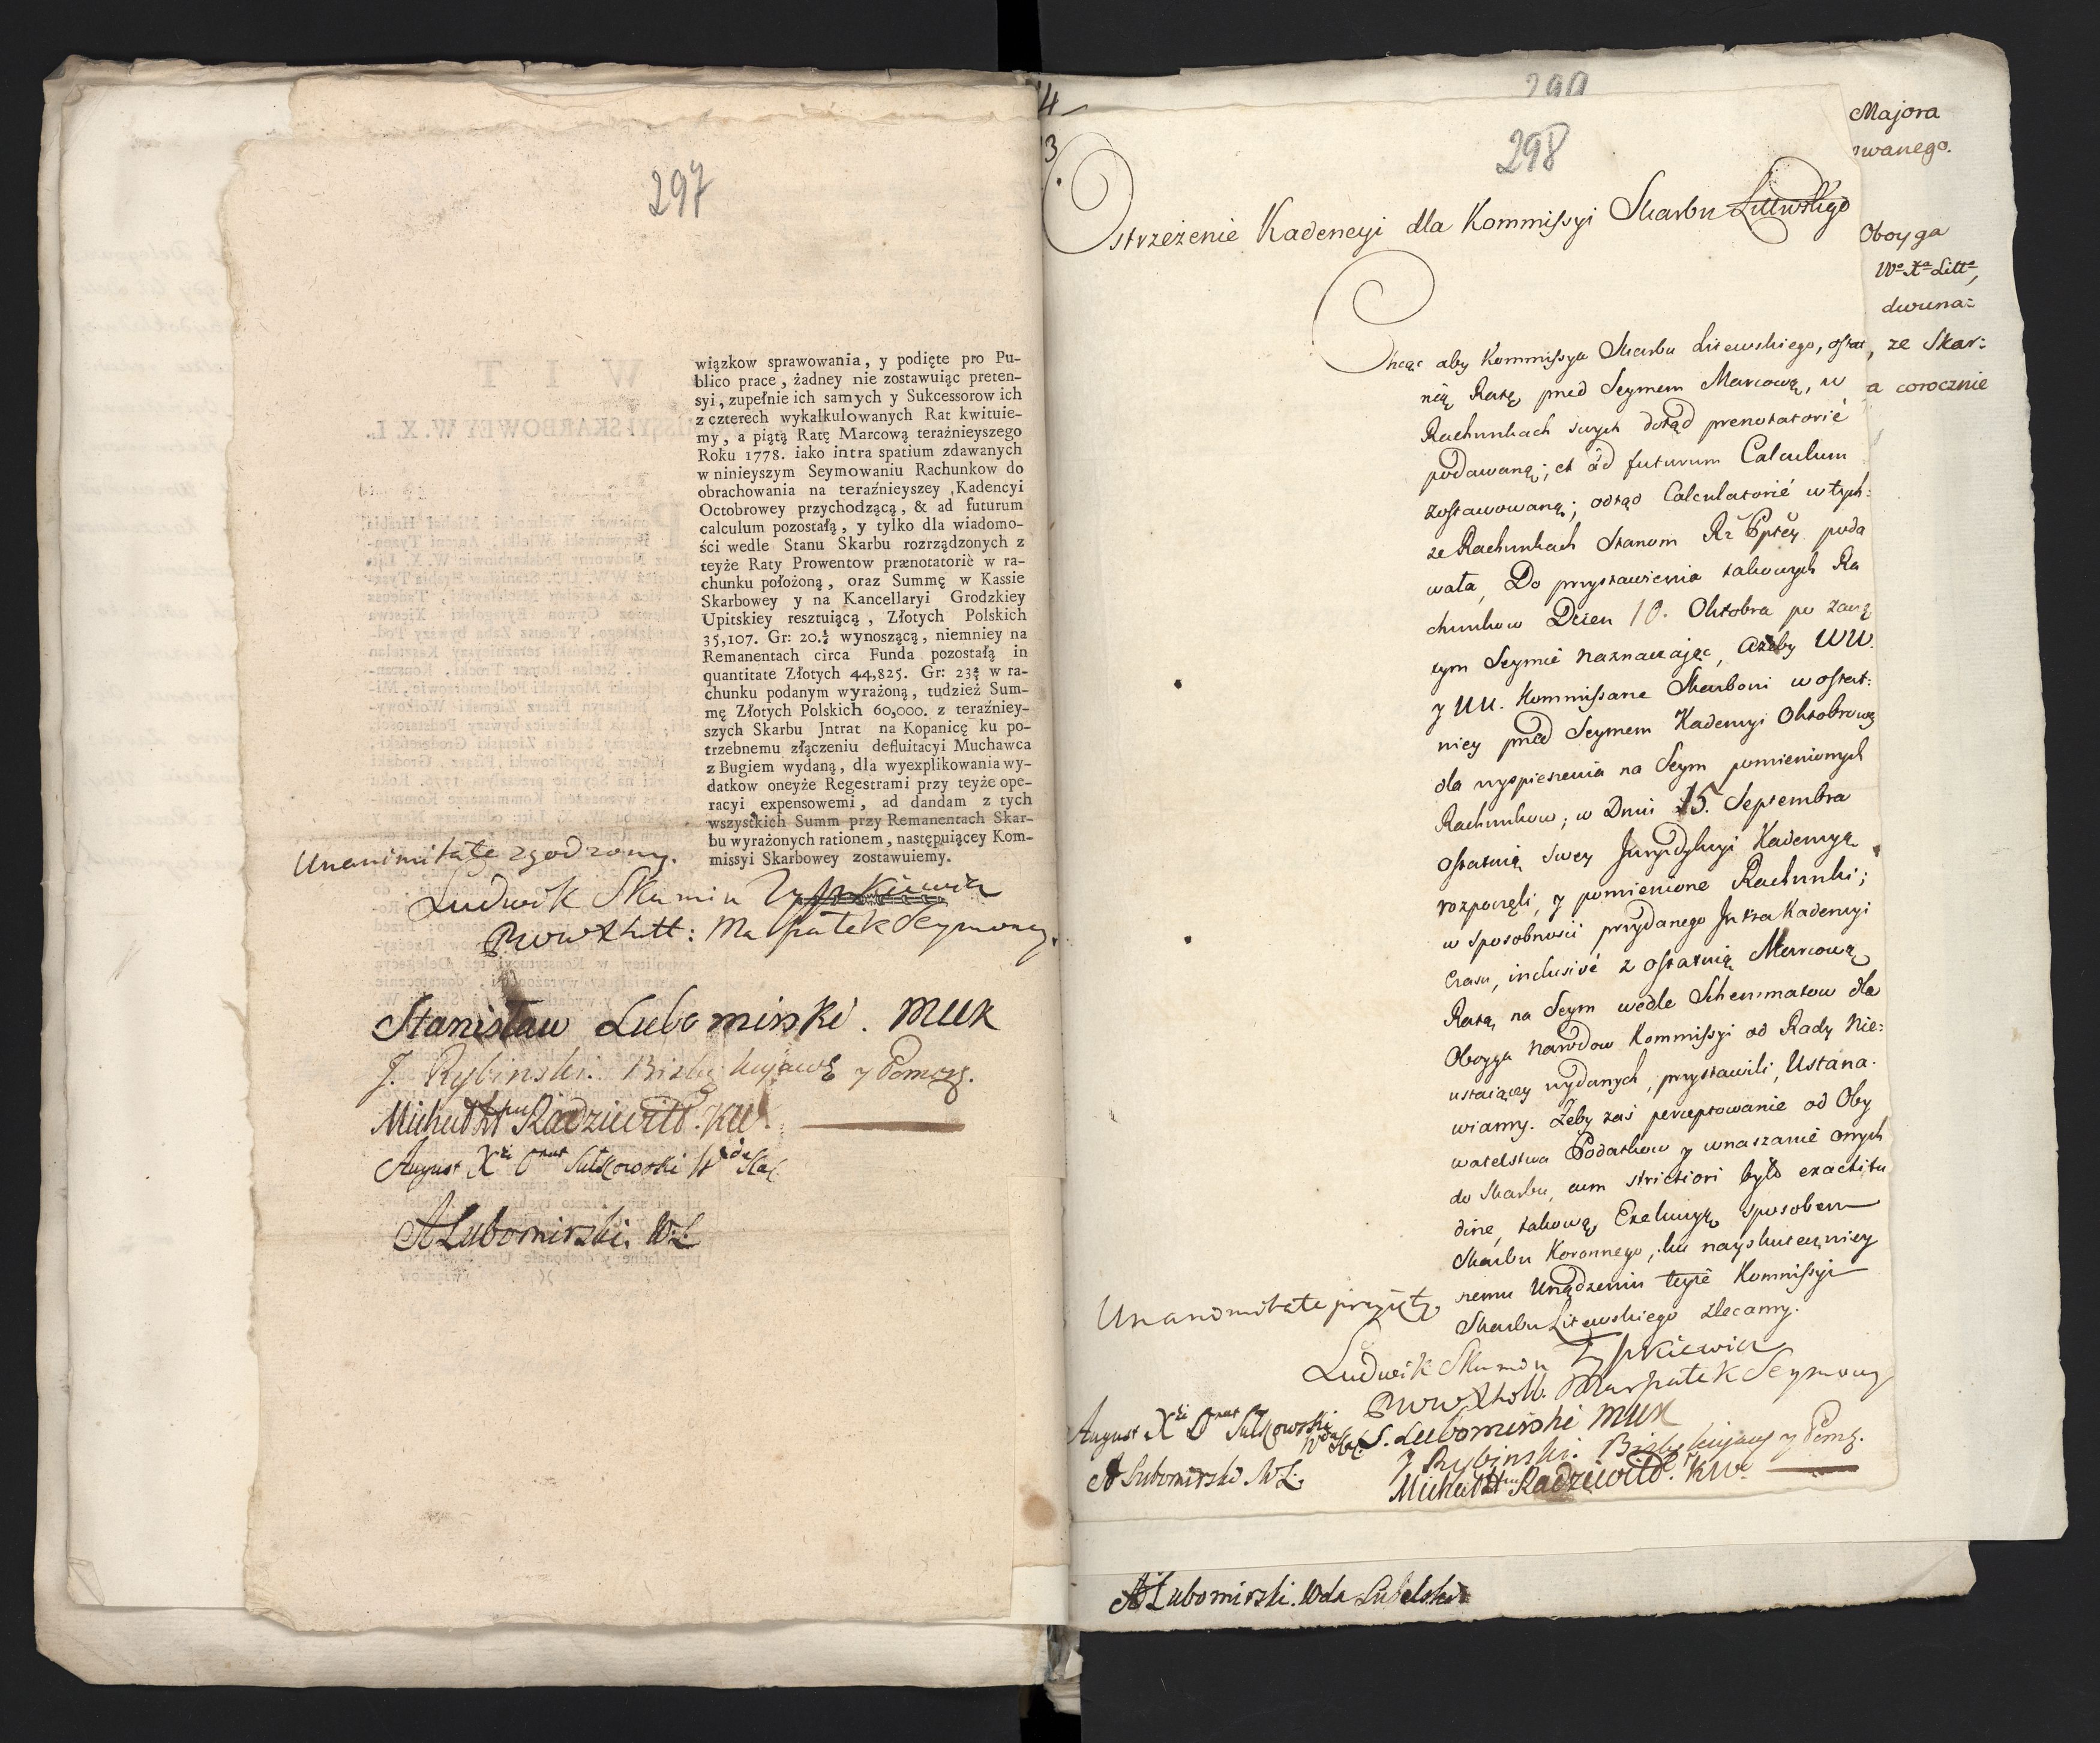 297
wiązkow sprawowania, y podięte pro Pu-
blico prace, żadney nie zostawuiąc preten-
syi, zupełnie ich samych y Sukcessorow ich
z czterech wykalkulowanych Rat kwituie-
my, a piątą Ratę Marcową teraźnieyszego
Roku 1778. iako intra spatium zdawanych
w ninieyszym Seymowaniu Rachunkow do
obrachowania na teraźnieyszey Kadencyi
Octobrowey przychodzącą, & ad futurum
calculum pozostałą, y tylko dla wiadomo-
ści wedle Stanu Skarbu rozrządzonych z
teyże Raty Prowentow prænotatoriè w ra-
chunku położoną, oraz Summę w Kassie
Skarbowey y na Kancellaryi Grodzkiey
Upitskiey resztuiącą, Złotych Polskich
35,107. Gr: 20.½ wynoszącą, niemniey na
Remanentach circa Funda pozostałą in
quantitate Złotych 44,825. Gr: 23¾ w ra-
chunku podanym wyrażoną, tudzież Sum-
mę Złotych Polskich 60,000. z teraźniey-
szych Skarbu Jntrat na Kopanicę ku po-
trzebnemu złączeniu defluitacyi Muchawca
z Bugiem wydaną, dla wyexplikowania wy-
datkow oneyże Regestrami przy teyże ope-
racyi expensowemi, ad dandam z tych
wszystkich Summ przy Remanentach Skar-
bu wyrażonych rationem, następuiącey Kom-
missyi Skarbowey zostawuiemy.
Unanimitate zgodzony.
Ludwik Skumin Tyszkiewicz
PWWXLitt: Marszałek Seymowy.
Stanisław Lubomirski. MWK
J. Rybinski. Biskup Kujawś y Pomorś.
Michał Radziwiłł. KW.
August Xże Sułkowski Wda Kal.
A Lubomirski. W:L
4
3
290
298
Ostrzeżenie Kadencyi dla Kommissyi Skarbu Littwskgo
Chcąc aby Kommissya Skarbu Litewskiego, ostat
nią Ratę przed Seymem Marcową, w
Rachunkach swych dotąd prenotatorié
podawaną; et ad futurum Calculum
zostawowaną; odtąd Calculatorié w tych-
że Rachunkach Stanom Rz Ppltey poda
wała, Do przystawienia takowych Ra
chunkow Dzien 10. Oktobra po zaczę
tym Seymie naznaczając, ażeby WW.
y UU. Kommissarze Skarbowi w ostat:
niey przed Seymem Kadencyi Oktobrowey
dla wyspieszenia na Seym pomienionych
Rachunkow; w Dniu 15. Septembra
ostatnią swey Juryzdykcyi Kadencyą
rozpoczęli, y pomienione Rachunki;
w sposobnosci przydanego Jntra Kadencyi
Czasu, inclusivé z ostatnią Marcową
Ratą, na Seym wedle Schemmatow dla
Oboyga Narodow Kommissyi od Rady Nie:
ustaiącey wydanych, przystawili, Ustana-
wiamy. Żeby zaś perceptowanie od Oby
watelstwa Podatkow y wnaszanie onych
do Skarbu, cum strictiori było exactitu
dine, takową Exekucyą sposobem
Skarbu Koronnego, ku nayskuteczniey
szemu Urządzeniu teyże Kommissyi
Skarbu Litewskiego zlecamy.
Unanimitate przyięty
Ludwik Skumin Tyszkiewicz
PWWXLitt. Marszałek Seymowy
August Xże Sułkowski
Wda Kal.
S. Lubomirski MWK
J Rybinski. Biskup Kujaws y Pomś.
A Lubomirski. W L:
Michał Radziwiłł. KW.
Majora
wanego.
Oboyga
Wo Xa Litto,
dwuna:
, ze Skar:
a corocznie
A Lubomirski. Wda Lubelski